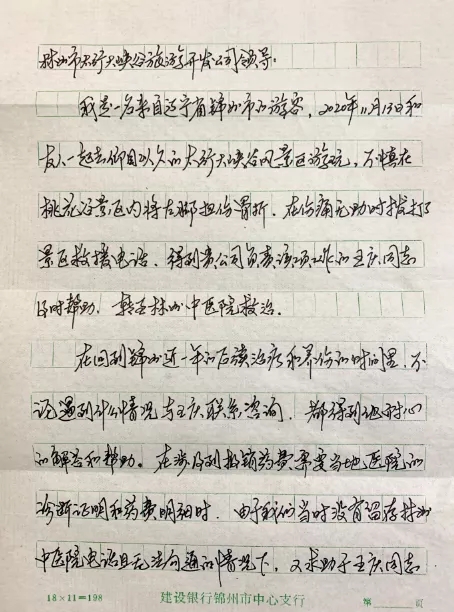 林州市太行大峡谷旅游开发公司领导:
我是一名来自辽宁省锦州市的游客,2020年11月13日和
友人一起去仰目以久的太行大峡谷风景区游玩,不慎在
桃花谷景区内将左脚扭伤骨折。在伤痛无助时拨打了
景区救援电话,得到贵公司负责该项工作的王庆同志
及时帮助,转至林州中医院救治。
在回到锦州近一年的后续治疗和养伤的时间里,不
论遇到什么情况与王庆联系咨询,都得到他耐心
的解答和帮助。在涉及到报销药费需要当地医院的
诊断证明和药费明细时,由于我们当时没有留存林州
中医院电话且无法沟通的情况下,又求助于王庆同志
18×11=198 建设银行锦州市中心支行 第 页